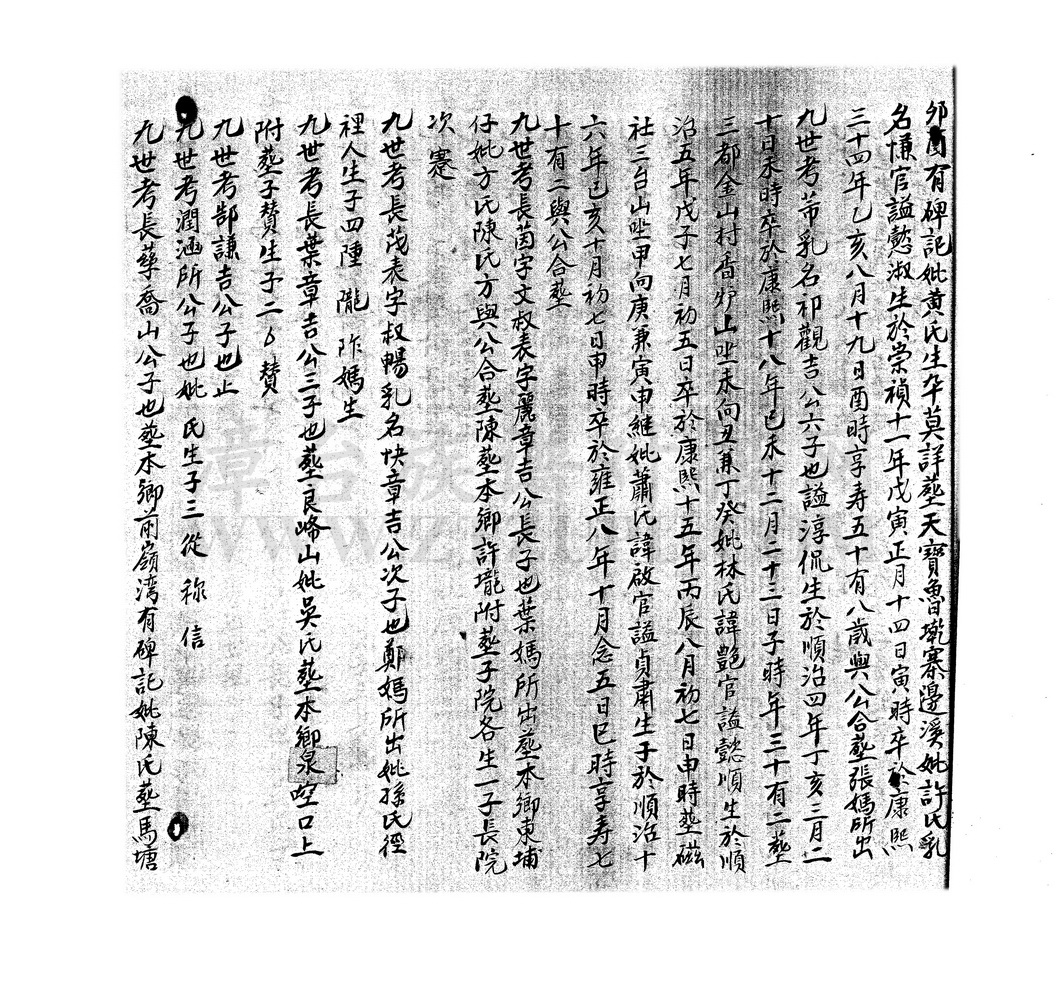 卯酉有碑記妣黄氏生卒莫詳塟天寶魯壠寨邊溪妣許氏乳
名慊官謚懿淑生於崇禎十一年戊寅正月十四日寅時卒於康熙
三十四年乙亥八月十九日酉時享寿五十有八歲與公合塟張媽所出
九世考芾乳名祁觀吉公六子也謚淳侃生於順治四年丁亥三月二
十日未時卒於康熙十八年己未十二月二十三日子時年三十有二塟
三都金山村香炉上坐未向丑兼丁癸妣林氏諱艶官謚懿順生於順
治五年戊子七月初五日卒於康熙十五年丙辰八月初七日申時塟磁
社三台山坐甲向庚兼寅申継妣蕭氏諱啟官謚貞肅生于於順治十
六年己亥十月初七日申時卒於雍正八年十月念五日巳時享寿七
十有二與公合塟
九世考長茵字文叔表字麗章吉公長子也葉媽所出塟本鄉東埔
仔妣方氏陳氏方與公合塟陳塟本鄉許壠附塟子院各生一子長院
次蹇
九世考長茂表字叔暢乳名快章吉公次子也鄭媽所出妣孫氏徑
裡人生子四陲 隴 阼媽生
九世考長葉章吉公三子也塟良峰山妣吳氏塟本鄉泉塋口上
附塟子賛生子二 賛
九世考郜謙吉公子也止
九世考潤涵所公子也妣 氏生子三從 祢 信
九世考長蕚喬山公子也塟本鄉前嶺湾有碑記妣陳氏塟馬塘
章台族譜
www.z